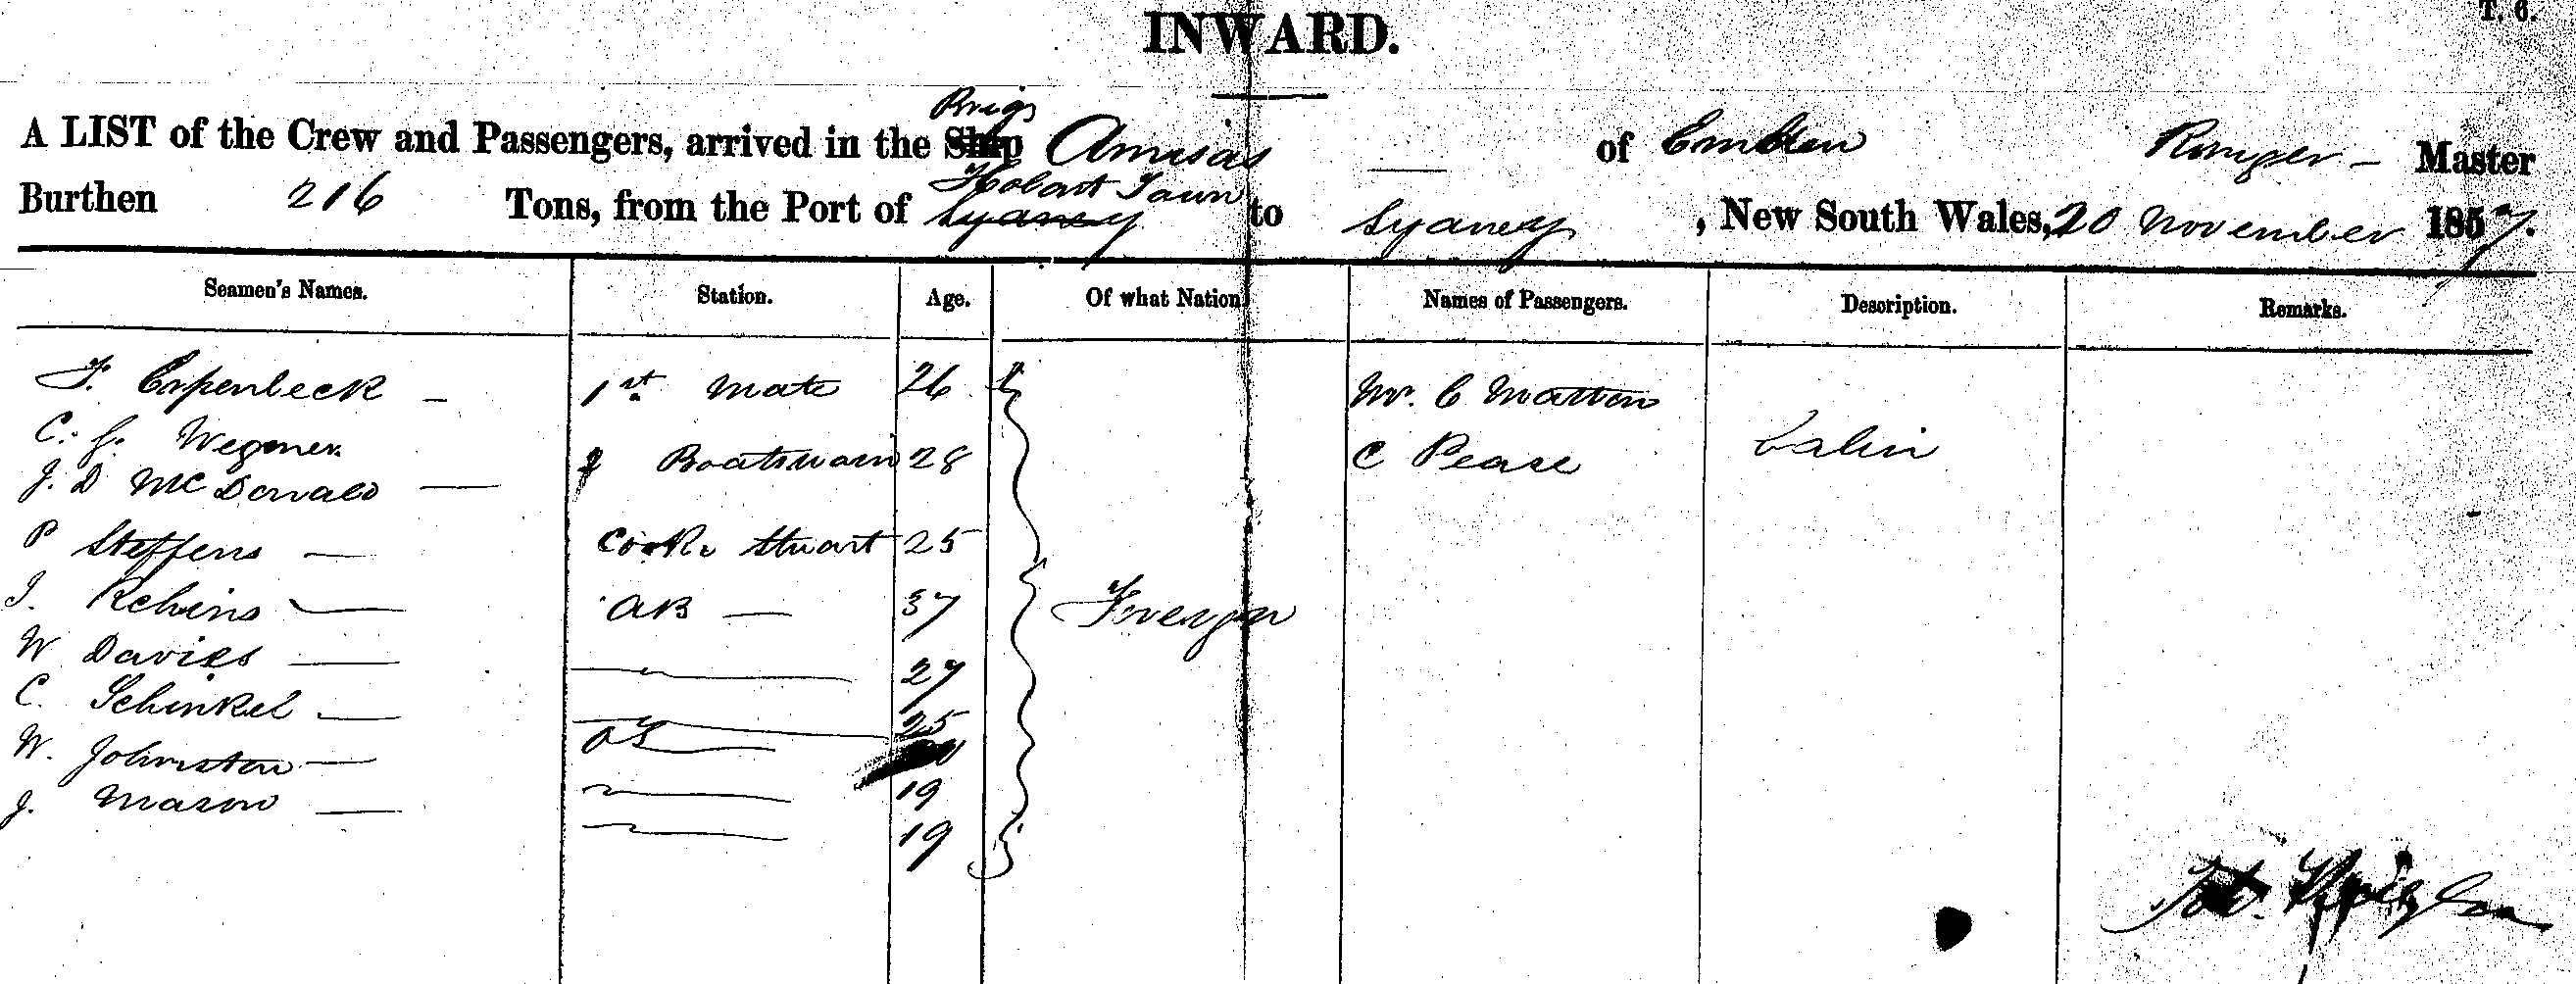 T. 6.
INWARD.
Brig
A LIST of the Crew and Passengers, arrived in the Ship Amisas of Embden Master
Hobart Town
Burthen 216 Tons, from the Port of Sydney to Sydney, New South Wales, 20 November 1857.
Seamen's Names. Station. Age. Of what Nation. Names of Passengers. Description. Remarks.
F. Espenbeck 1st Mate 26 Mr. C Matton
C. J. Wegener Boatswain 28 C Pease Cabin
J. D McDonald
P Steffens Cook & Stuart 25
J. Rehins AB 37 Foreign
W Davies 27
C. Schinkel 25
W. Johnston OS 19
J. Mason 19